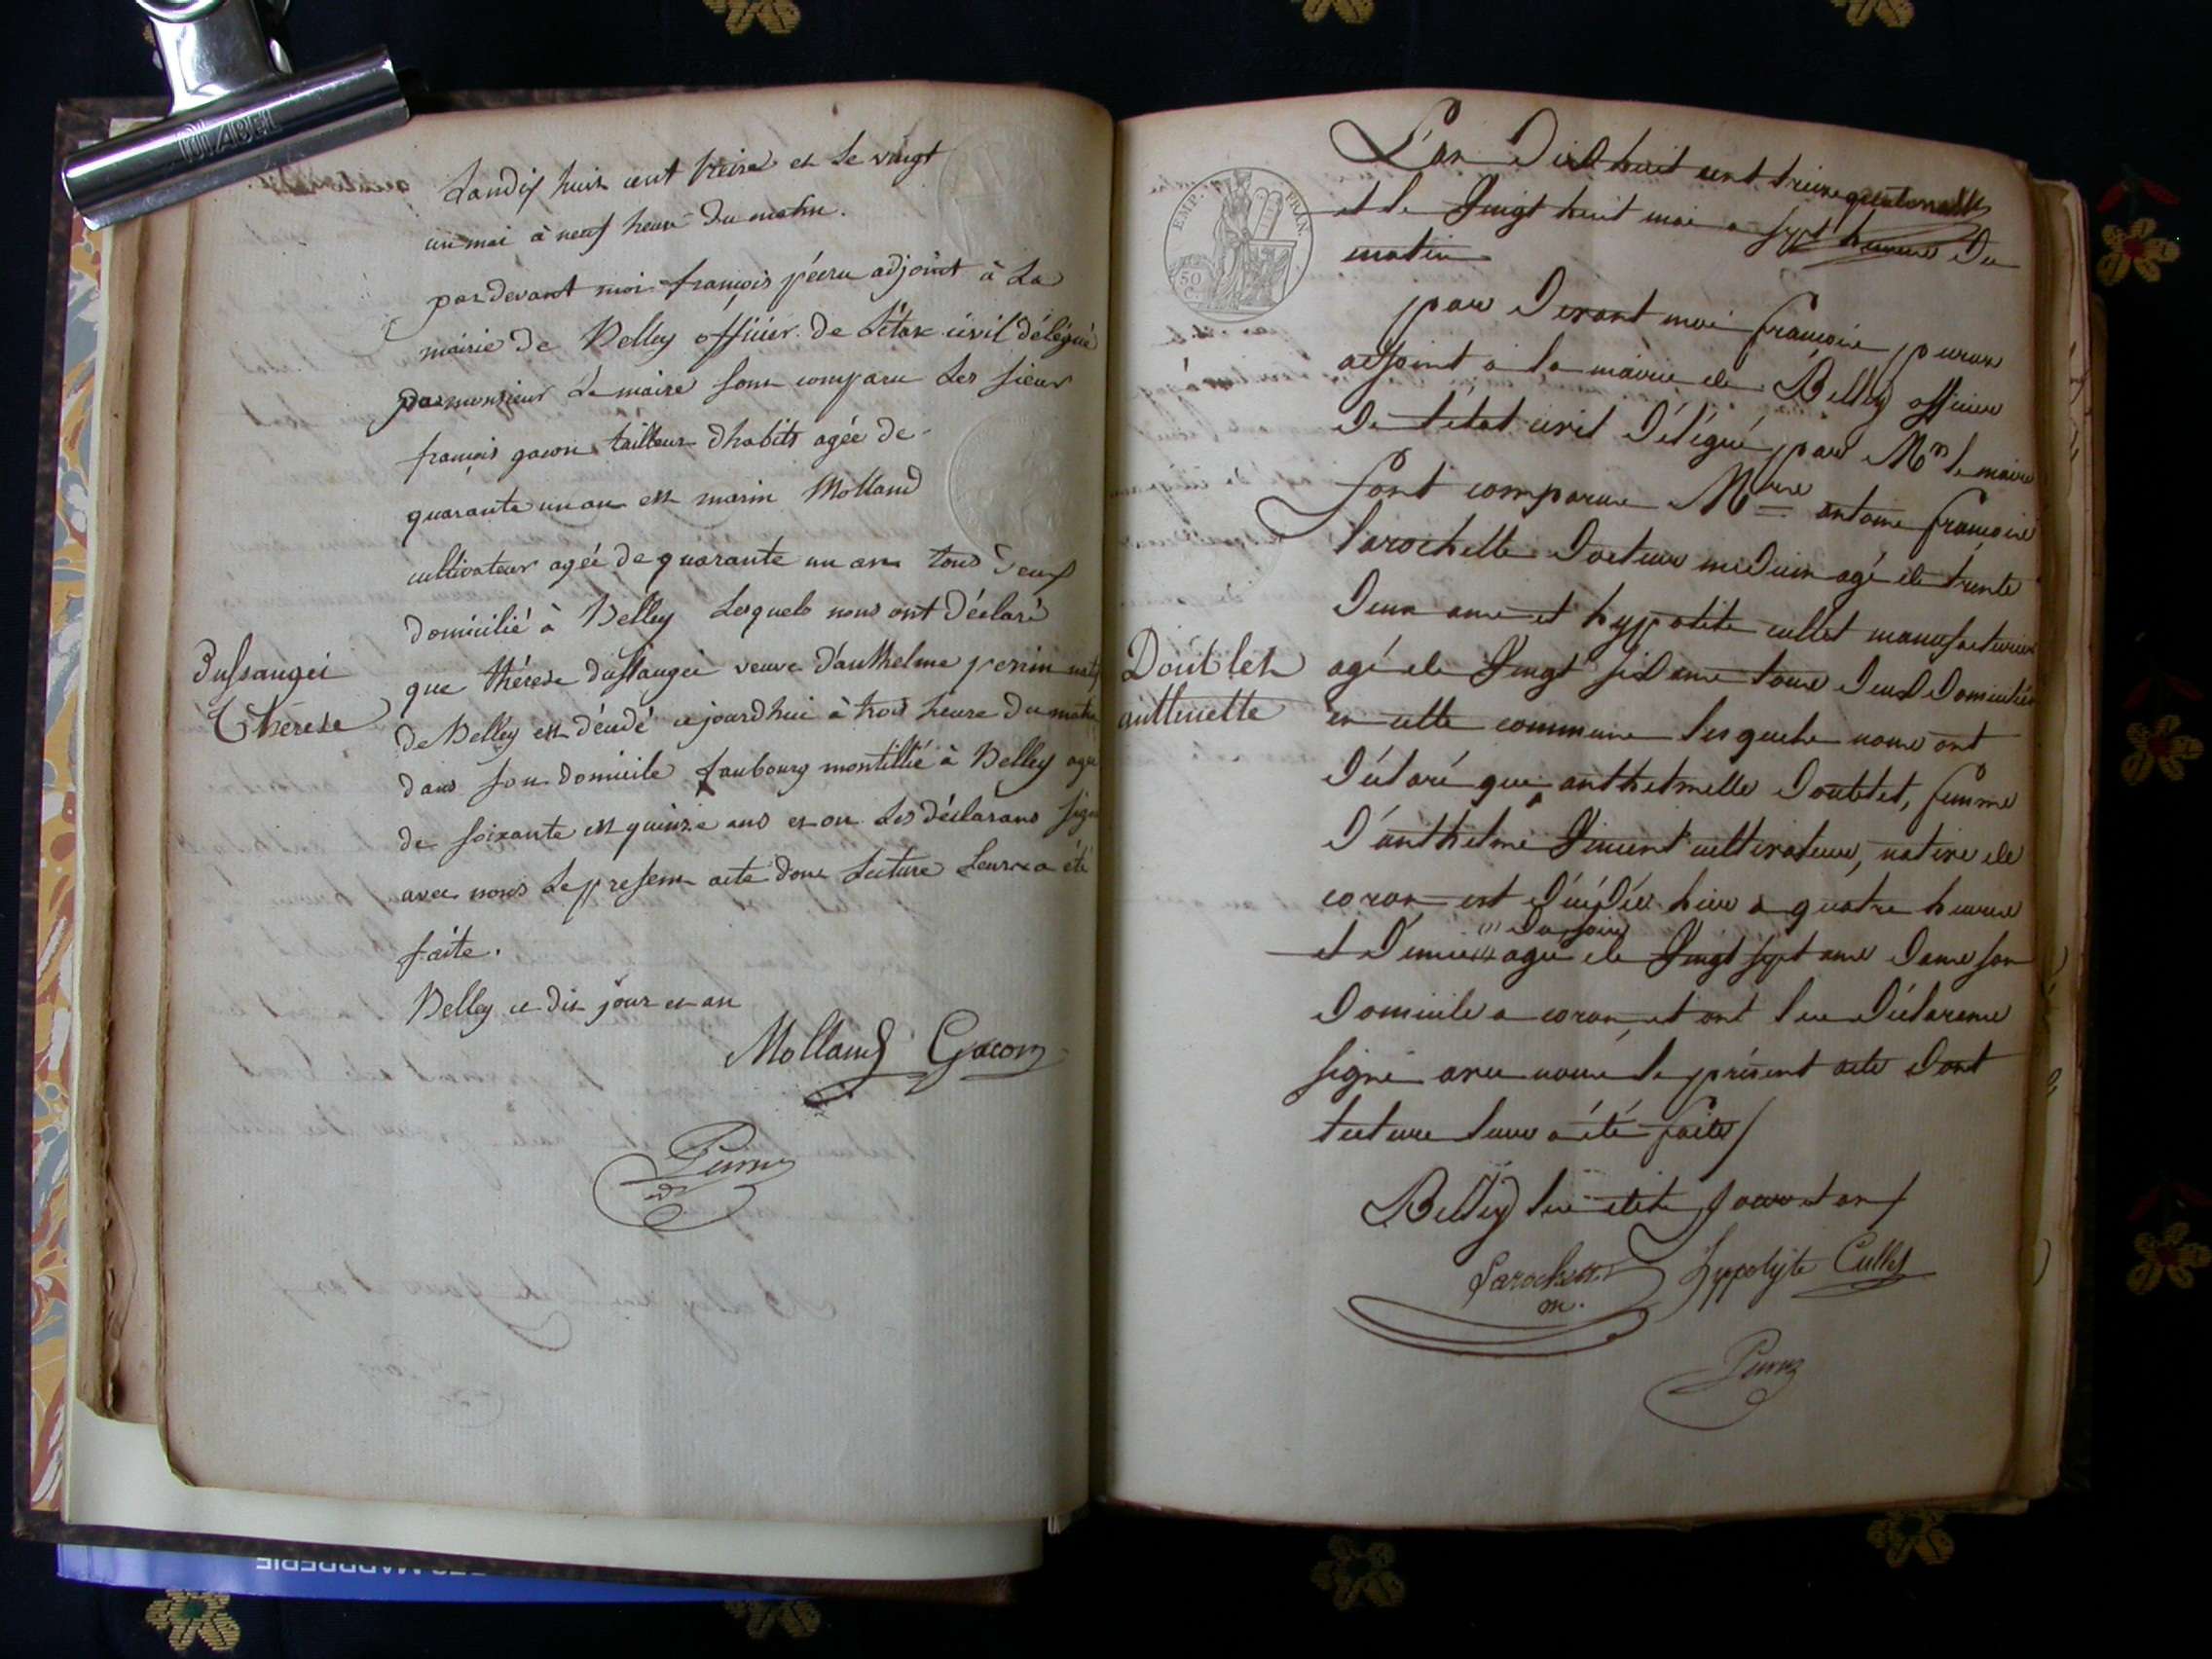 Landix huit cent treise et le vingt
un mai à neuf heure du matin.
par devant moi françois péeru adjoint à La
mairie de Belley officier de L'état civil délégué
par monsieur Le maire sont comparu Les sieur
françois gacon tailleur d'habits agée de
quarante un an et marin Molland
cultivateur agée de quarante un ans tous deux
domicilié à Belley Lesquels nous ont déclaré
Dussaugei
que thérèse dussaugei veuve d'anthelme perrin
Thérèse
de Belley est décédé ce jourdhui à trois heure du matin
dans son domicile faubourg montillié à Belley agé
de soixante et quinze ans et on Les déclarans signé
avec nous Le present acte dont Lecture Leur a été
faite.
Belley ce dit jour et an
Molland Gacon
L'an Dix huit cent treize quatorze
et le Vingt huit mai a sept heures du
matin
EMP. FRAN.
50 C.
par Devant moi françois
adjoint a la mairie de Belley officier
De l'état civil Délégué par Mr le maire
Sont comparue antoine françois
Larochette Docteur medecin agé de trente
Deux ans et hyppolite cullet manufacturier
Doublet
agé de Vingt six ans tous Deux Domiciliés
anthmette
en cette commune lesquels nous ont
Déclaré que anthelmette Doublet, femme
D'anthelme Vincent cultivateur, native de
coron est Décédée hier a quatre heures
Du soir
et Demie agée de Vingt sept ans Dans son
Domicile a coron, et ont les Déclarans
signé avec nous le présent acte Dont
lecture leur a été faite
Belley les dits jour et an
Larochette Hyppolyte Cullet
m.